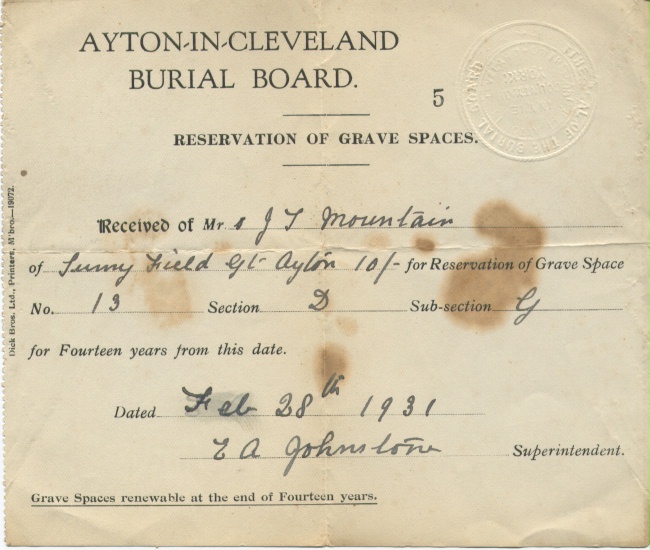 AYTON-IN-CLEVELAND
BURIAL BOARD.
5
RESERVATION OF GRAVE SPACES.
Received of Mrs J T Mountain
of Sunny Field Gt Ayton 10/- for Reservation of Grave Space
No. 13 Section D Sub-section G
for Fourteen years from this date.
Dated Feb 28th 1931
E A Johnstone Superintendent.
Grave Spaces renewable at the end of Fourteen years.
Dick Bros. Ltd., Printers, M'bro.—19072.
OF THE BURIAL BOARD